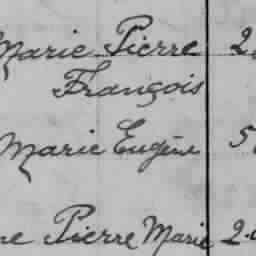 Marie Pierre 2
François
Marie Eugène 5
Pierre Marie 2.